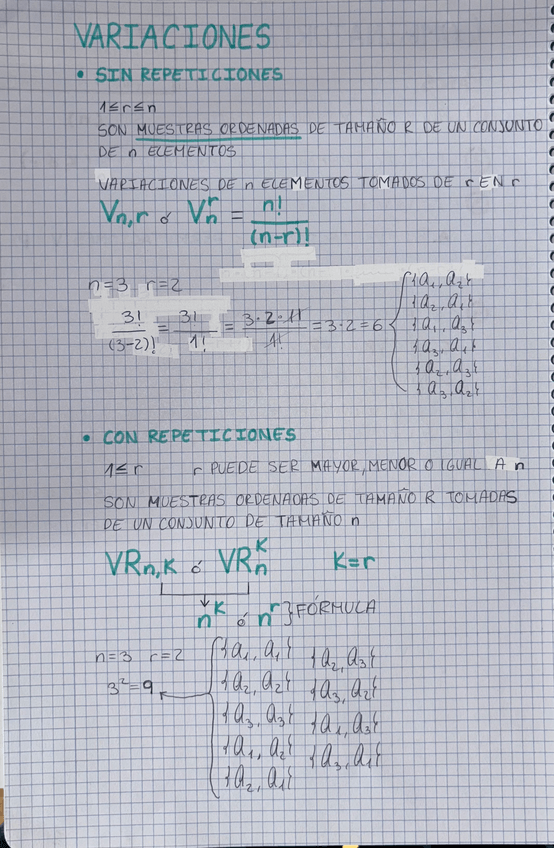 VARIACIONES
• SIN REPETICIONES
1≤r≤n
SON MUESTRAS ORDENADAS DE TAMAÑO R DE UN CONJUNTO
DE n ELEMENTOS
VARIACIONES DE n ELEMENTOS TOMADOS DE r EN r
Vn,r ó Vn^r = n!/(n-r)!
n=3 r=2
3!/(3-2)! = 3!/1! = 3·2·1!/1! = 3·2=6
{a1, a2}
{a2, a1}
{a1, a3}
{a3, a1}
{a2, a3}
{a3, a2}
• CON REPETICIONES
1≤r r PUEDE SER MAYOR, MENOR O IGUAL A n
SON MUESTRAS ORDENADAS DE TAMAÑO R TOMADAS
DE UN CONJUNTO DE TAMAÑO n
VRn,K ó VRn^K K=r
n^K ó n^r } FÓRMULA
n=3 r=2
3²=9
{a1, a1} {a2, a3}
{a2, a2} {a3, a2}
{a3, a3} {a1, a3}
{a1, a2} {a3, a1}
{a2, a1}